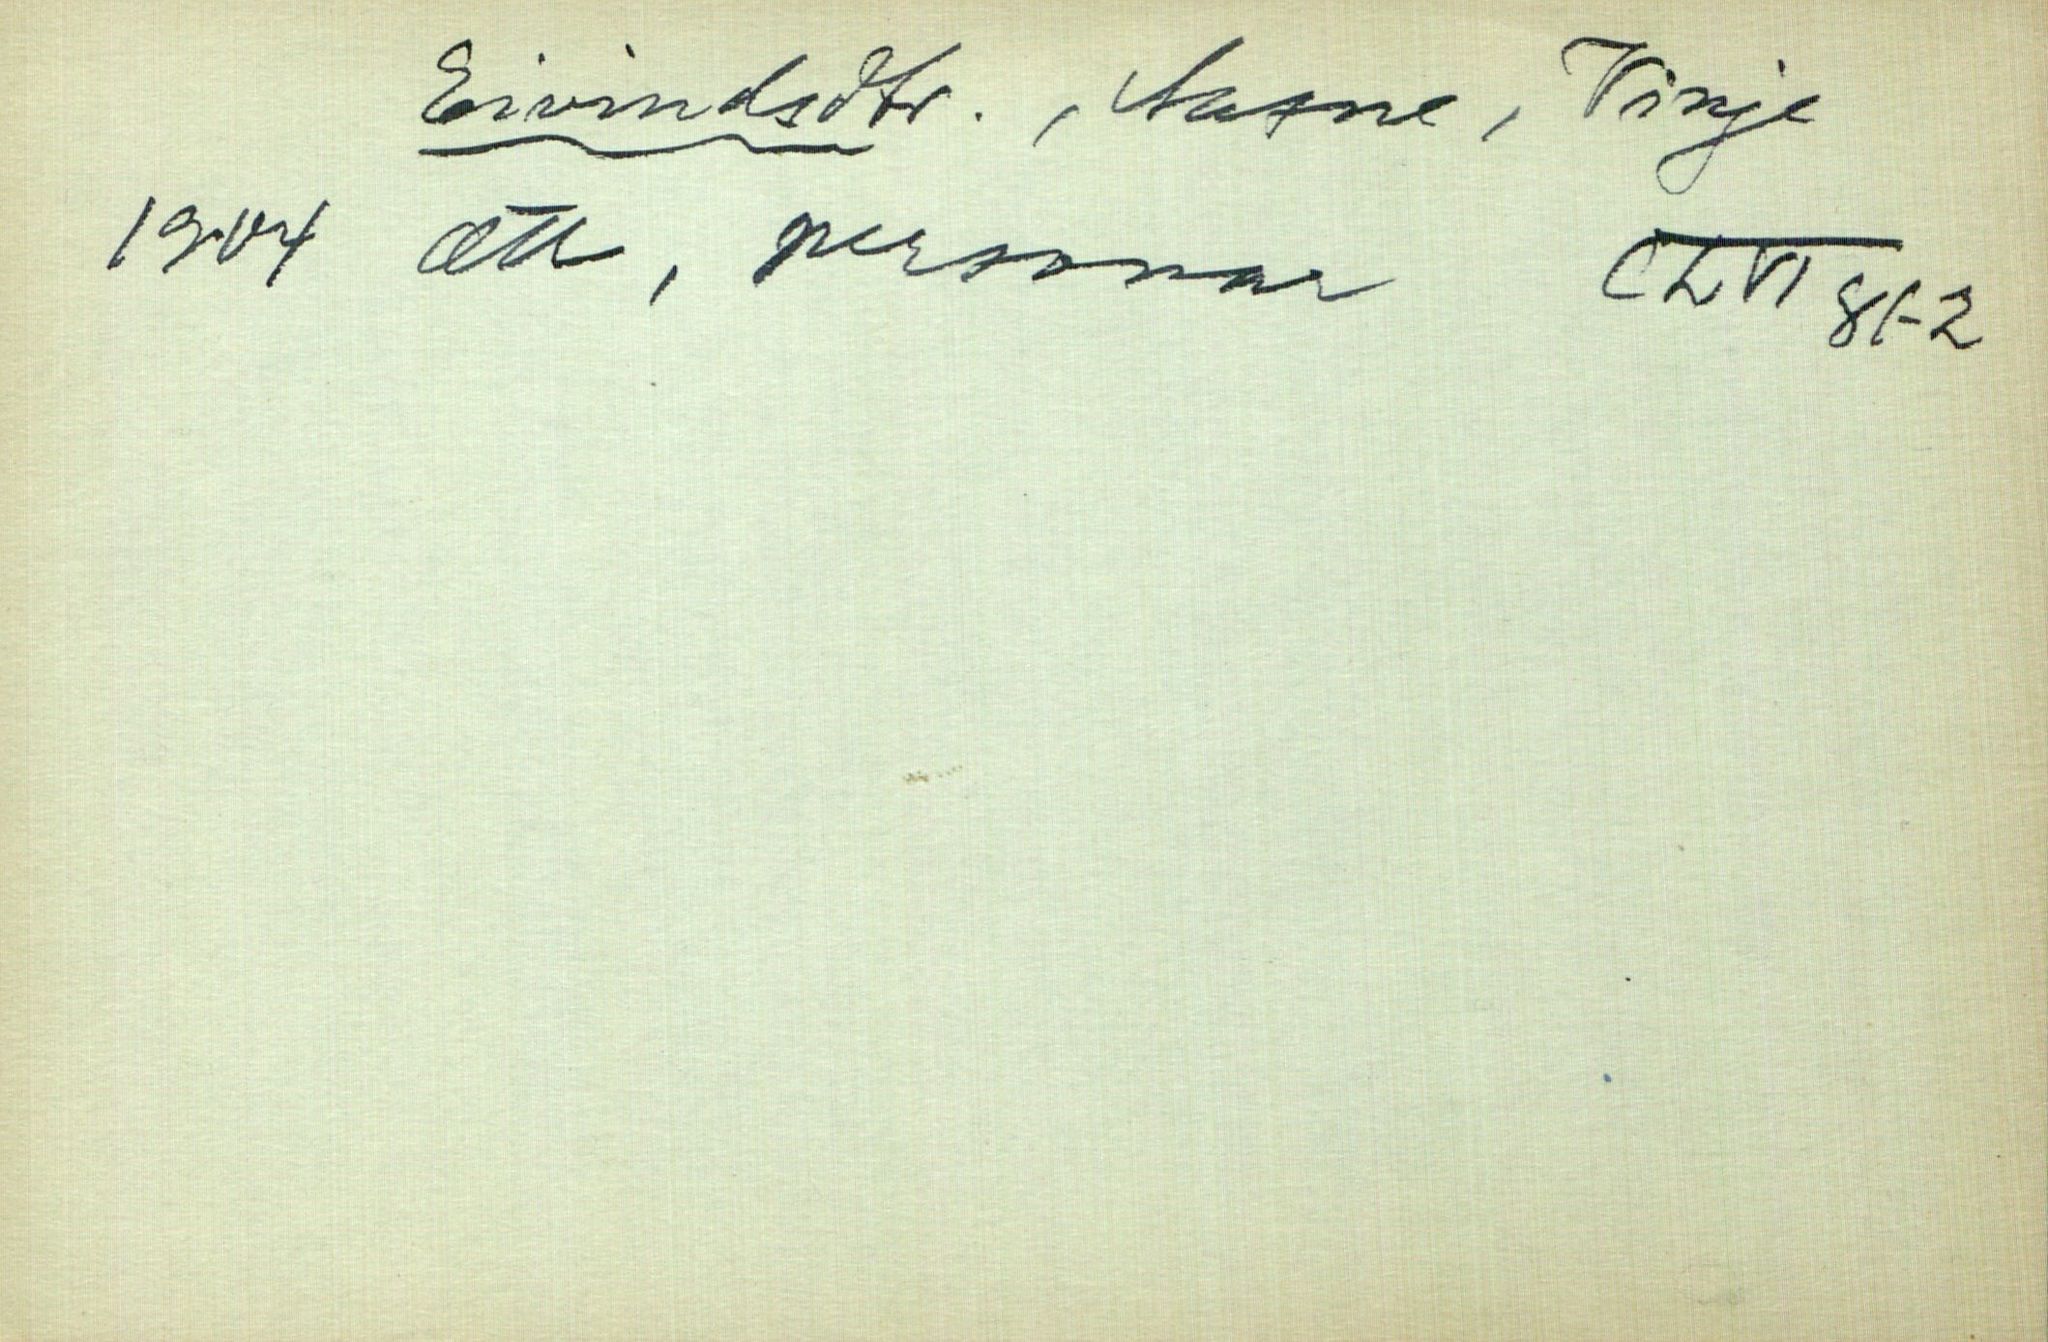 Eivindsdtr., Aasne, Vinje
1904 Ætt, personar CLVI 81-2